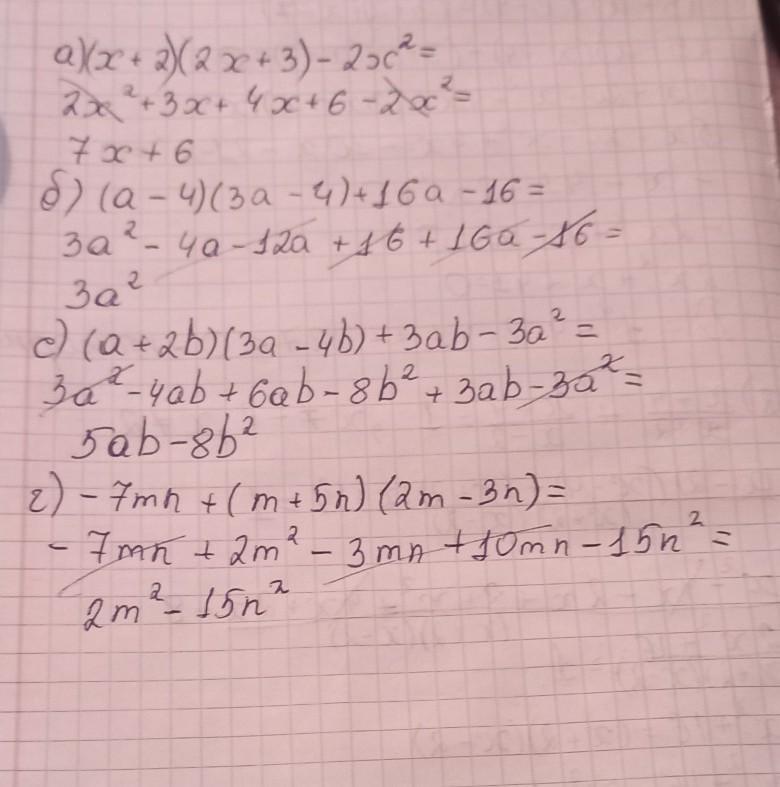 а) (x + 2)(2x + 3) - 2x² =
2x² + 3x + 4x + 6 - 2x² =
7x + 6
б) (a - 4)(3a - 4) + 16a - 16 =
3a² - 4a - 12a + 16 + 16a - 16 =
3a²
с) (a + 2b)(3a - 4b) + 3ab - 3a² =
3a² - 4ab + 6ab - 8b² + 3ab - 3a² =
5ab - 8b²
г) - 7mn + (m + 5n)(2m - 3n) =
- 7mn + 2m² - 3mn + 10mn - 15n² =
2m² - 15n²